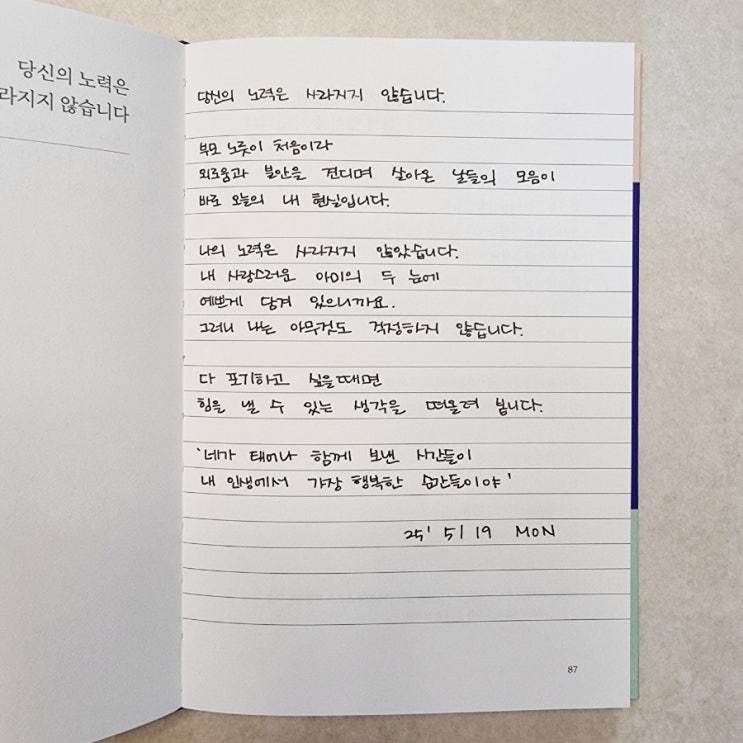 당신의 노력은
라지지 않습니다
당신의 노력은 사라지지 않습니다.
부모 노릇이 처음이라
외로움과 불안을 견디며 살아온 날들의 모음이
바로 오늘의 내 현실입니다.
나의 노력은 사라지지 않았습니다.
내 사랑스러운 아이의 두 눈에
예쁘게 담겨 있으니까요.
그러니 나는 아무것도 걱정하지 않습니다.
다 포기하고 싶을때면
힘을 낼 수 있는 생각을 떠올려 봅니다.
'네가 태어나 함께 보낸 시간들이
내 인생에서 가장 행복한 순간들이야'
25' 5/19 MON
87